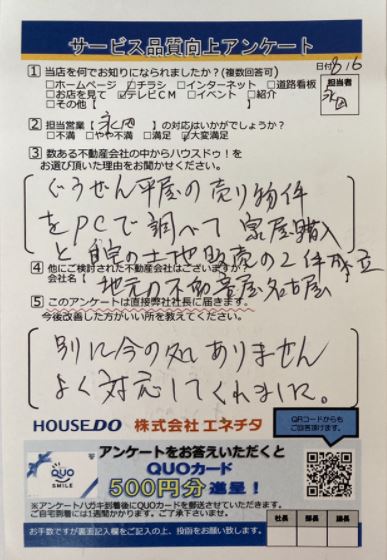 サービス品質向上アンケート
日付 8/6
① 当店を何でお知りになられましたか?(複数回答可)
担当者
永田
□ホームページ □チラシ □インターネット □道路看板
□お店を見て ☑テレビCM □イベント □紹介
□その他【 】
② 担当営業【永田】の対応はいかがでしょうか?
□不満 □やや不満 □満足 ☑大変満足
③ 数ある不動産会社の中からハウスドゥ!を
お選び頂いた理由をお聞かせください。
ぐうぜん平屋の売り物件
をPCで調べて 家屋購入
と 自宅の土地販売の2件成立
④ 他にご検討された不動産会社はございますか?
会社名( 地元の不動産屋名古屋
⑤ このアンケートは直接弊社社長に届きます。
今後改善した方がいい所を教えてください。
別に今の処ありません
よく対応してくれました。
HOUSEDO 株式会社 エネチタ
QRコードからも
ご回答頂けます。
アンケートをお答えいただくと
QUOカード
500円分 進呈!
QUO
SMILE
※アンケートハガキ到着後にQUOカードを郵送させていただきます。
ご自宅到着には1週間かかります。ご了承くださいませ。
お手数ですが裏面記入欄をご記入の上、投函をお願い致します。
社長 部長 店長